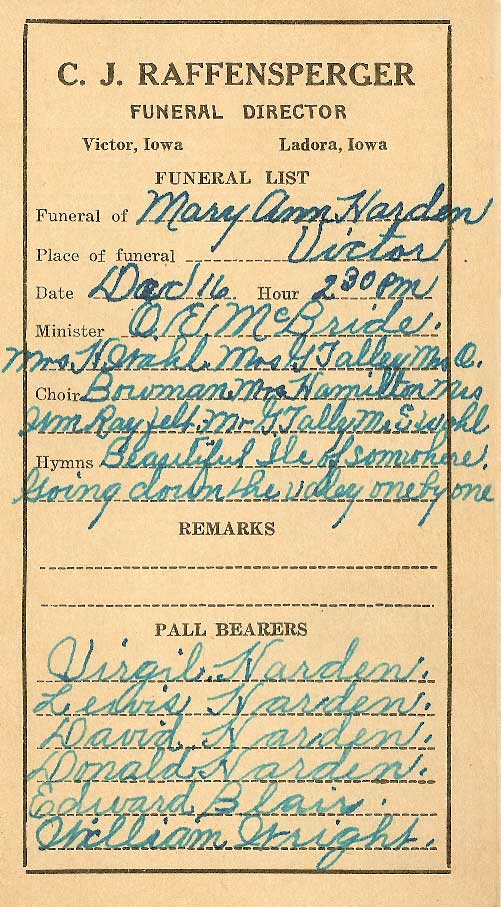 C. J. RAFFENSPERGER
FUNERAL DIRECTOR
Victor, Iowa Ladora, Iowa
FUNERAL LIST
Funeral of Mary Ann Harden
Place of funeral Victor
Date Dec 16 Hour 2 30 PM
Minister O. E. McBride.
Mrs H Wahl. Mrs G Talley Mrs O.
Choir Bowman. Mrs Hamilton Mrs
Ray Felt. Mr G Tally Mr E Wahl
Hymns Beautiful Ile of somwhere.
Going down the valley one by one
REMARKS
PALL BEARERS
Virgil Harden.
Lewis Harden.
David Harden.
Donald Harden.
Edward Blair.
William Wright.